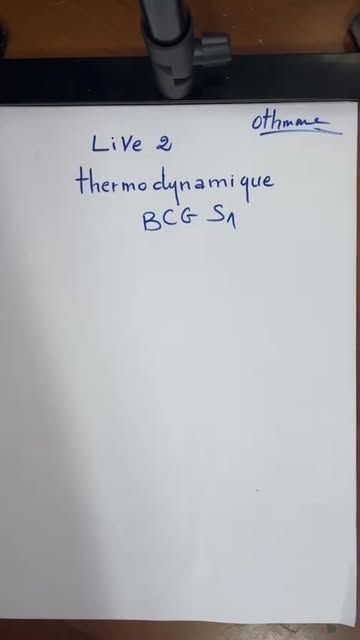 Othmane
Live 2
thermodynamique
BCG S1